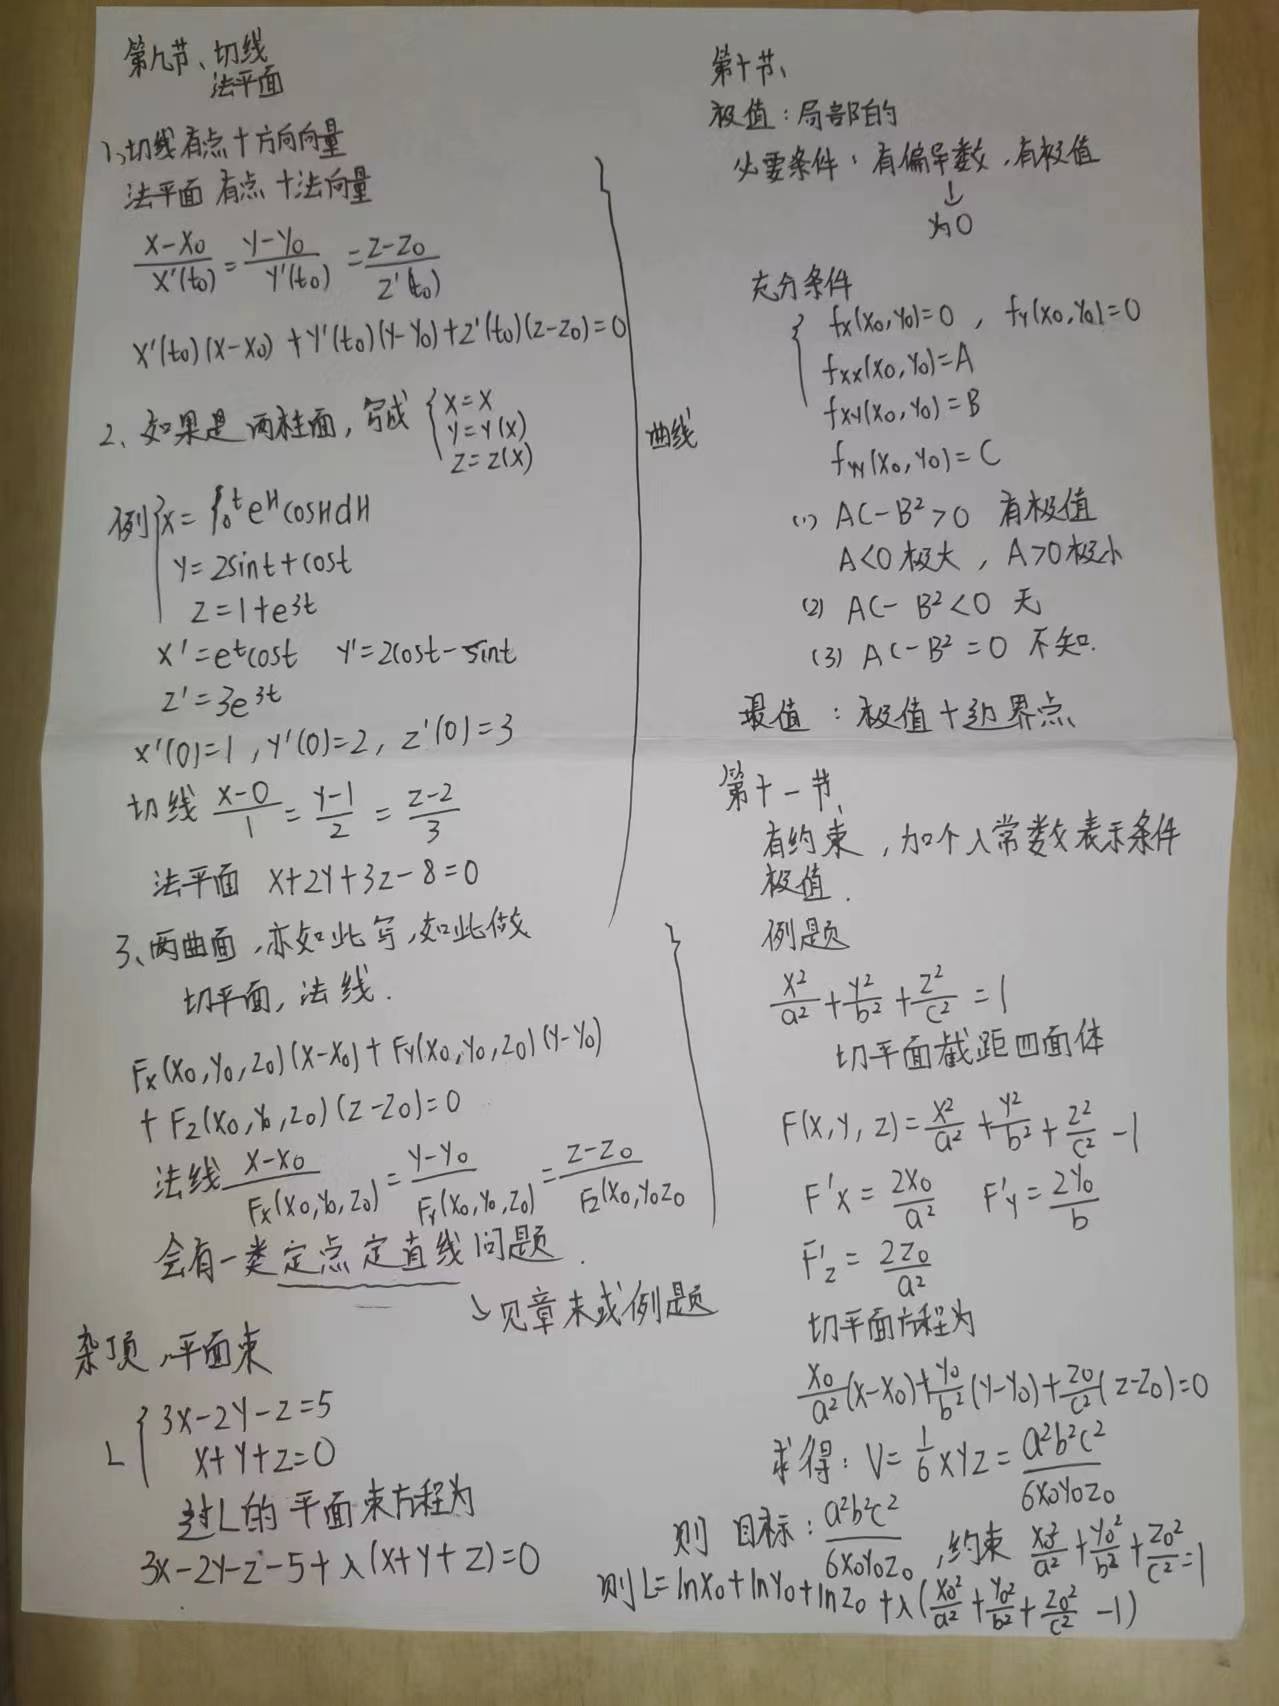 第九节、切线
法平面
1、切线有点+方向向量
法平面 有点+法向量
(x-x₀)/(x'(t₀)) = (y-y₀)/(y'(t₀)) = (z-z₀)/(z'(t₀))
x'(t₀)(x-x₀)+y'(t₀)(y-y₀)+z'(t₀)(z-z₀)=0
2、如果是两柱面,写成 { x=x
y=y(x)
z=z(x)
曲线
例 { x=∫₀ᵗ eᴴcosHdH
y=2sint+cost
z=1+e³ᵗ
x'=eᵗcost y'=2cost-sint
z'=3e³ᵗ
x'(0)=1, y'(0)=2, z'(0)=3
切线 (x-0)/1 = (y-1)/2 = (z-2)/3
法平面 x+2y+3z-8=0
3、两曲面,亦如此写,如此做
切平面,法线.
Fx(x₀,y₀,z₀)(x-x₀)+Fy(x₀,y₀,z₀)(y-y₀)
+Fz(x₀,y₀,z₀)(z-z₀)=0
法线 (x-x₀)/(Fx(x₀,y₀,z₀)) = (y-y₀)/(Fy(x₀,y₀,z₀)) = (z-z₀)/(Fz(x₀,y₀z₀
会有一类定点定直线问题.
↘见章末或例题
杂项,平面束
L { 3x-2y-z=5
x+y+z=0
过L的平面束方程为
3x-2y-z-5+λ(x+y+z)=0
第十节、
极值:局部的
必要条件:有偏导数,有极值
↓
为0
充分条件
{ fx(x₀,y₀)=0, fy(x₀,y₀)=0
fxx(x₀,y₀)=A
fxy(x₀,y₀)=B
fyy(x₀,y₀)=C
(1) AC-B²>0 有极值
A<0极大, A>0极小
(2) AC-B²<0 无
(3) AC-B²=0 不知.
最值:极值+边界点
第十一节、
有约束,加个入常数表示条件
极值.
例题
x²/a²+y²/b²+z²/c²=1
切平面截距四面体
F(x,y,z)=x²/a²+y²/b²+z²/c²-1
F'x=2x₀/a² F'y=2y₀/b
F'z=2z₀/a²
切平面方程为
x₀/a²(x-x₀)+y₀/b²(y-y₀)+z₀/c²(z-z₀)=0
求得:V=1/6xyz=a²b²c²/6x₀y₀z₀
则 目标:a²b²c²/6x₀y₀z₀,约束 x₀²/a²+y₀²/b²+z₀²/c²=1
则L=lnx₀+lny₀+lnz₀+λ(x₀²/a²+y₀²/b²+z₀²/c²-1)